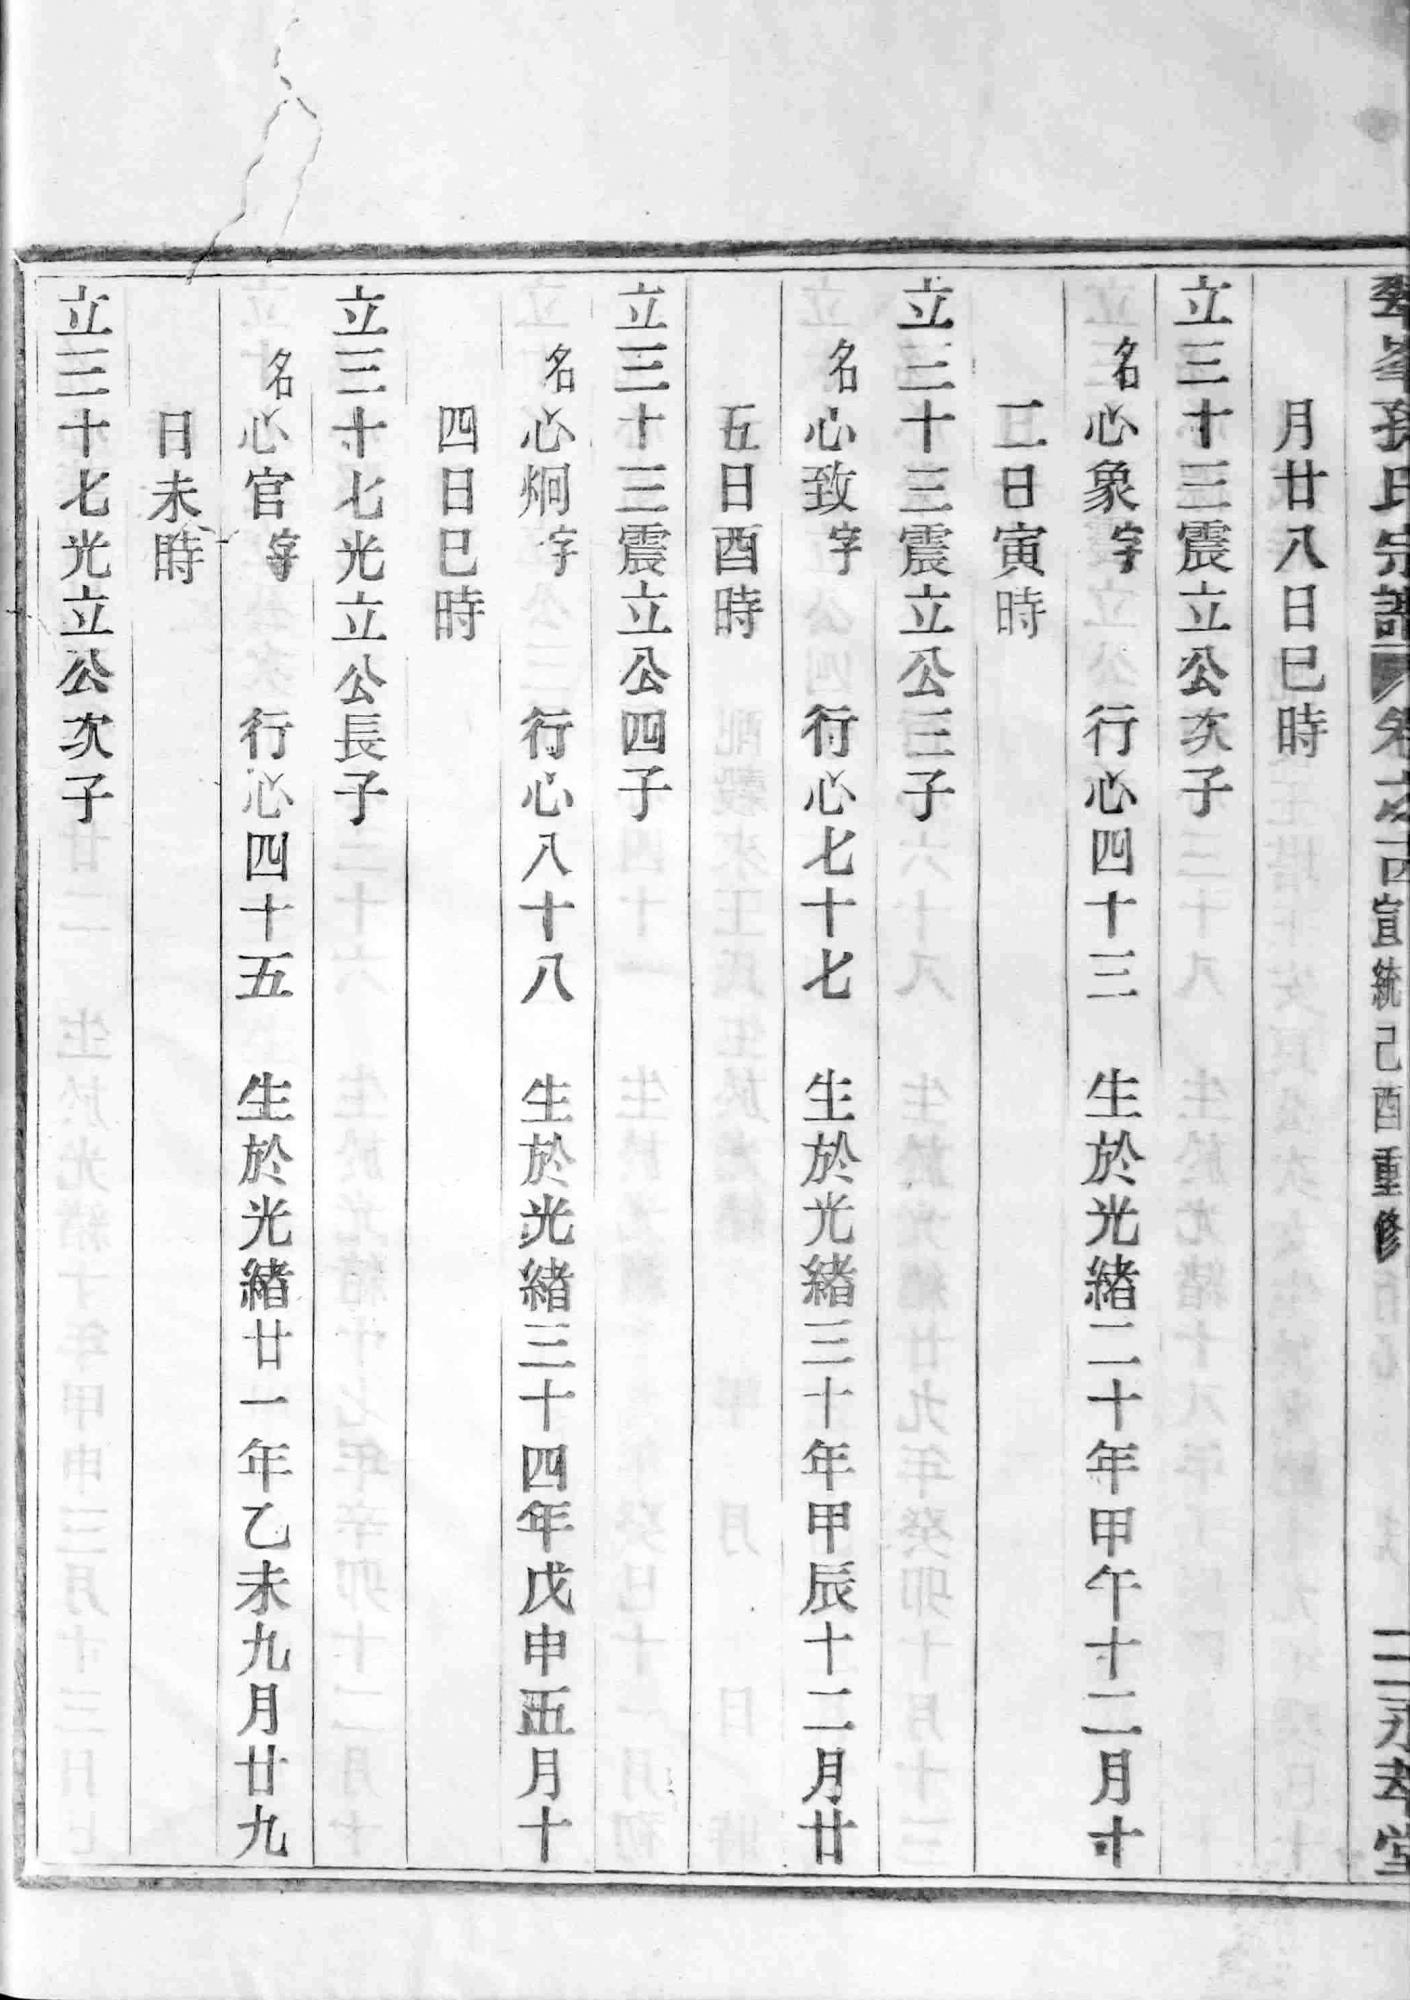 孫氏宗譜 卷之十四 宣統己酉重修 二 永孝堂
月廿八日巳時
立三十三震立公次子
名心象字 行心四十三 生於光緒二十年甲午十二月十
二日寅時
立三十三震立公三子
名心致字 行心七十七 生於光緒三十年甲辰十二月廿
五日酉時
立三十三震立公四子
名心炯字 行心八十八 生於光緒三十四年戊申五月十
四日巳時
立三十七光立公長子
名心官字 行心四十五 生於光緒廿一年乙未九月廿九
日未時
立三十七光立公次子